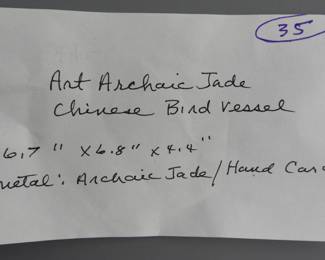 35
Art Archaic Jade
Chinese Bird Vessel
6.7" x 6.8" x 4.4"
Archaic Jade/Hand